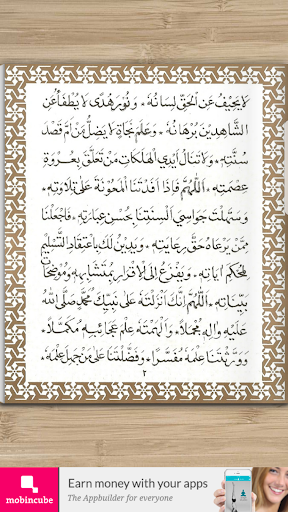 لَا يَحِيْفُ عَنِ الْحَقِّ لِسَانُهُ ۰ وَنُوْرَ هُدًى لَا يُطْفَأُ عَنِ
الشَّاهِدِيْنَ بُرْهَانُهُ ۰ وَعَلَمَ نَجَاةٍ لَا يَضِلُّ مَنْ اَمَّ قَصْدَ
سُنَّتِهِ ۰ وَلَا تَنَالُ اَيْدِي الْهَلَكَاتِ مَنْ تَعَلَّقَ بِعُرْوَةِ
عِصْمَتِهِ ۰ اَللّٰهُمَّ فَاِذَا اَفَدْتَنَا الْمَعُوْنَةَ عَلٰى تِلَاوَتِهِ ۰
وَسَهَّلْتَ جَوَاسِيَ اَلْسِنَتِنَا بِحُسْنِ عِبَارَتِهِ ۰ فَاجْعَلْنَا
مِمَّنْ يَرْعَاهُ حَقَّ رِعَايَتِهِ ۰ وَيَدِيْنُ لَكَ بِاعْتِقَادِ التَّسْلِيْمِ
لِمُحْكَمِ اٰيَاتِهِ ۰ وَيَفْزَعُ اِلَى الْاِقْرَارِ بِمُتَشَابِهِهِ وَمُوْضَحَاتِ
بَيِّنَاتِهِ ۰ اَللّٰهُمَّ اِنَّكَ اَنْزَلْتَهُ عَلٰى نَبِيِّكَ مُحَمَّدٍ صَلَّى اللهُ
عَلَيْهِ وَاٰلِهِ مُجْمَلًا ۰ وَاَلْهَمْتَهُ عِلْمَ عَجَائِبِهِ مُكَمَّلًا ۰
وَوَرَّثْتَنَا عِلْمَهُ مُفَسَّرًا ۰ وَفَضَّلْتَنَا عَلٰى مَنْ جَهِلَ عِلْمَهُ ۰
٢
mobincube
Earn money with your apps
The Appbuilder for everyone